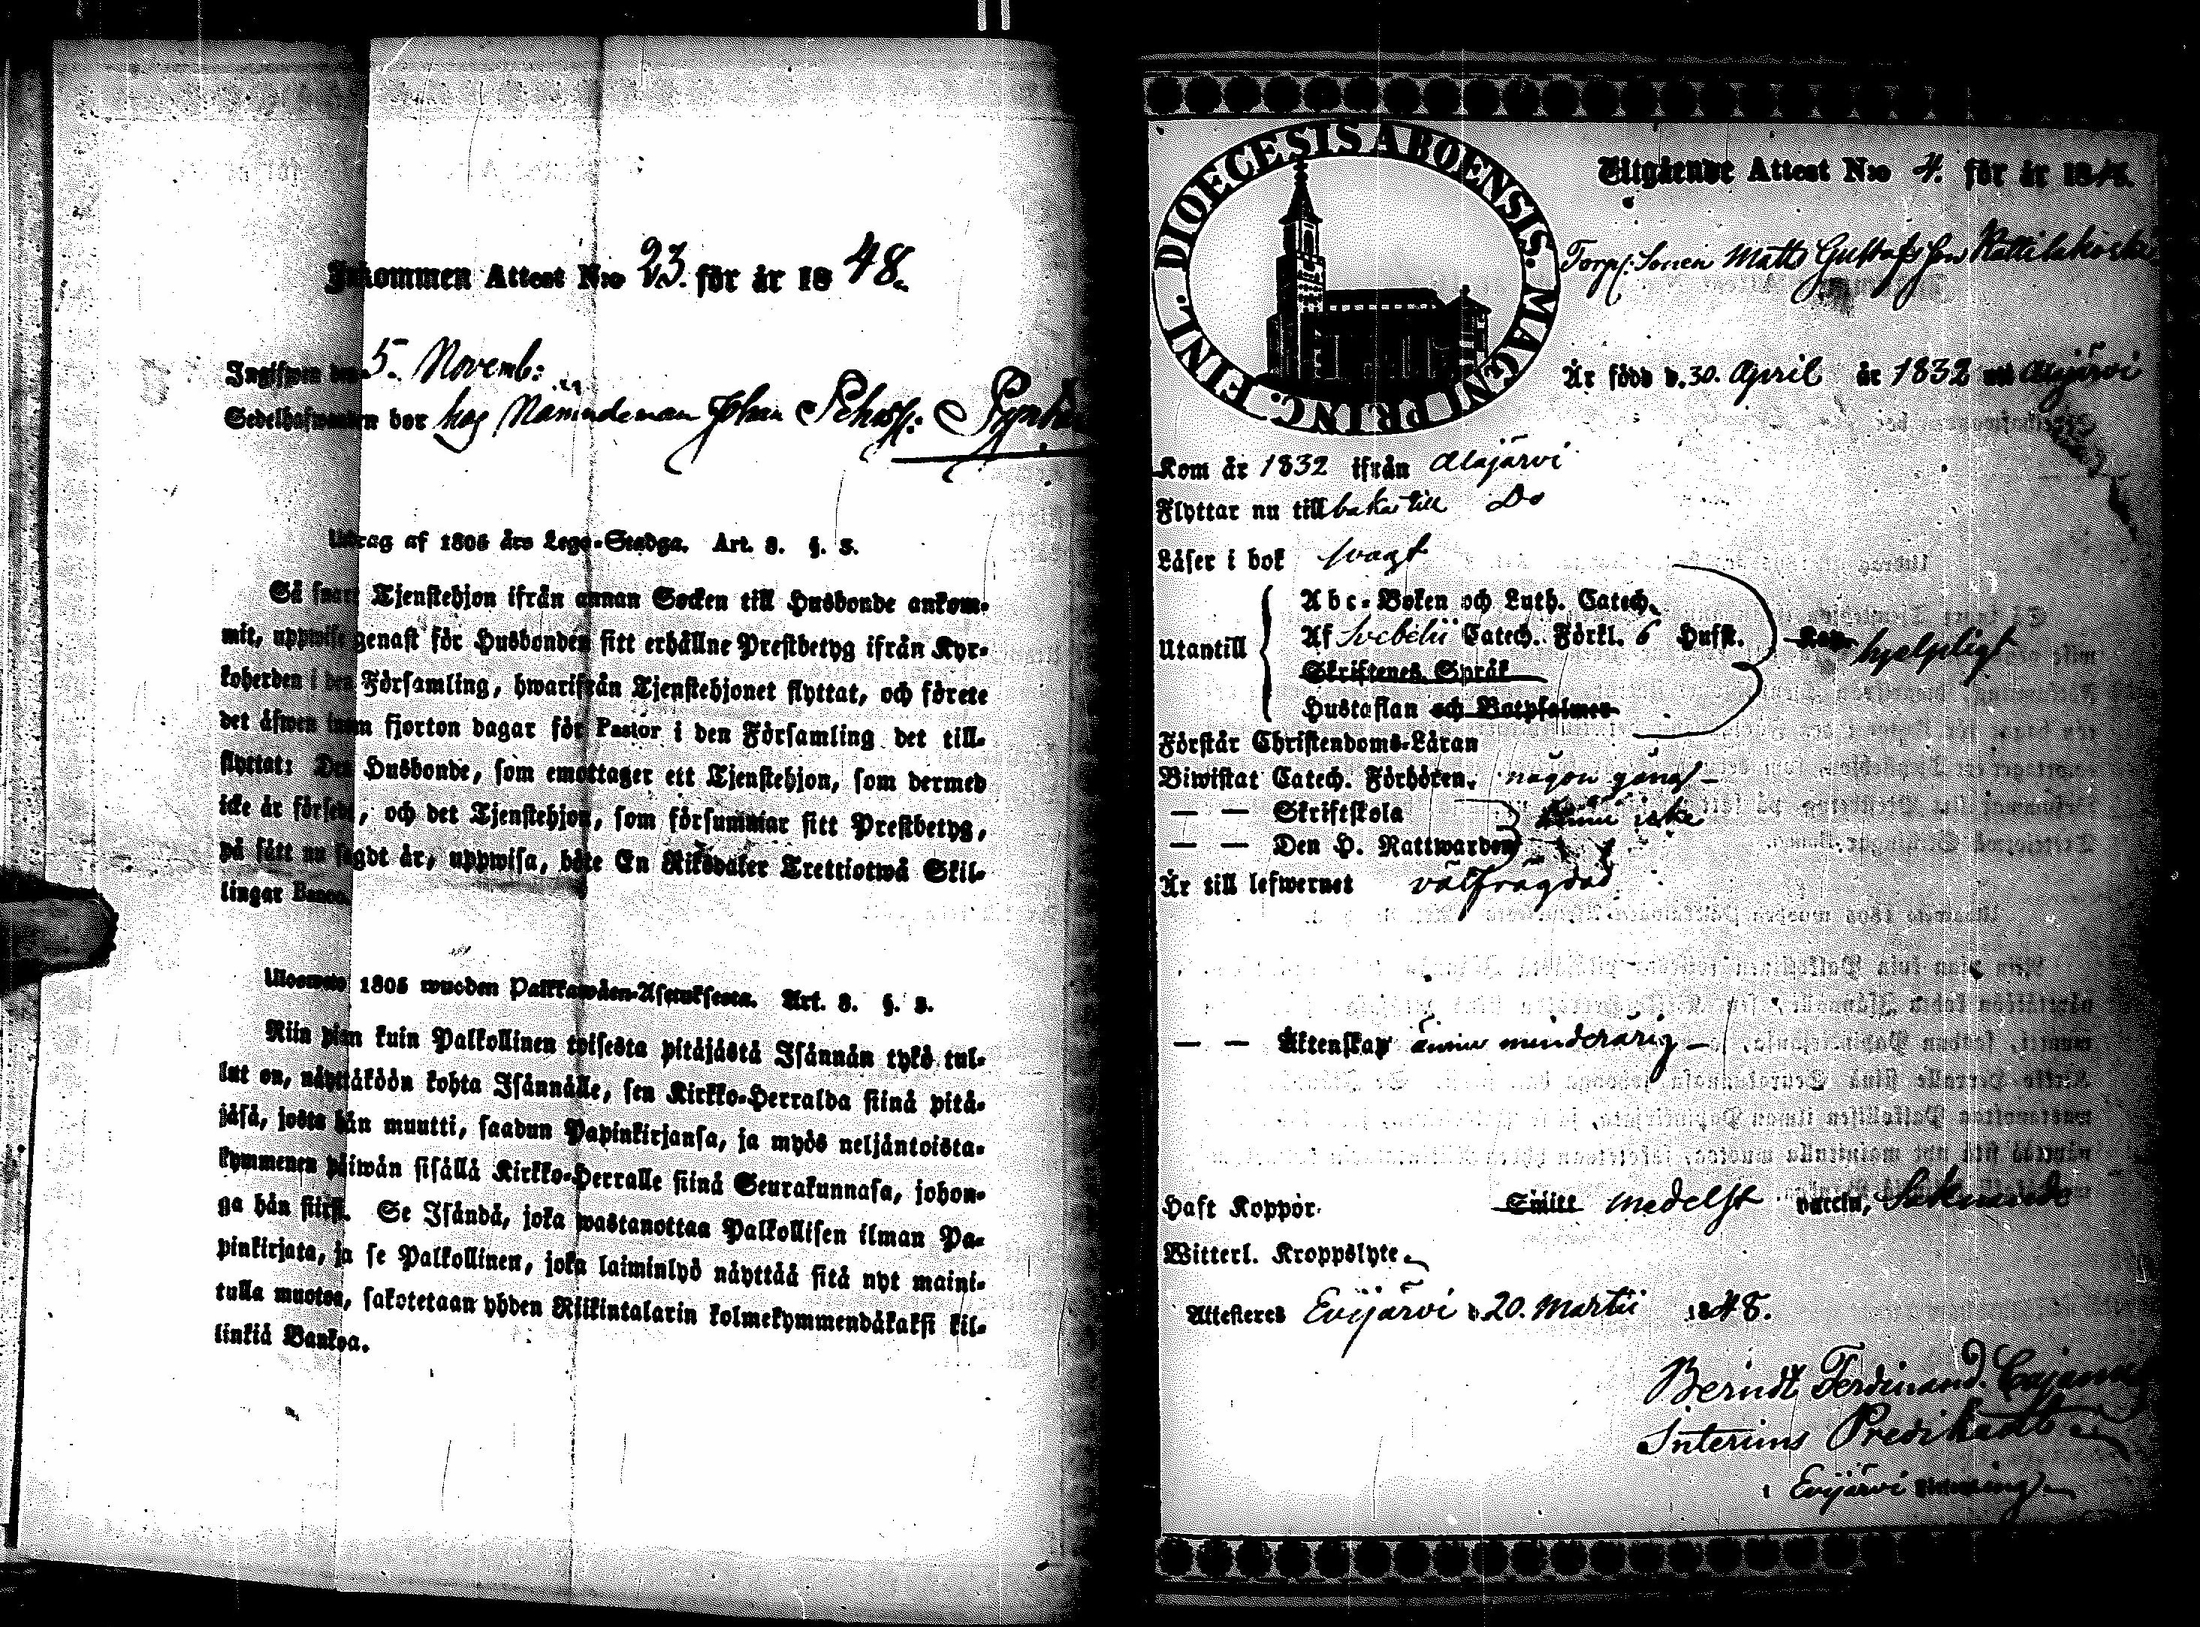 Inkommen Attest N:o 23. för år 1848.
Ingifwen den 5. Novemb:
Sedelhafwanden bor hos Nämndeman Johan
Utdrag af 1805 års Lego-Stadga. Art. 3. §. 3.
Så snart Tjenstehjon ifrån annan Socken till Husbonde ankom-
mit, uppwise genast för Husbonden sitt erhållne Prestbetyg ifrån Kyr-
koherden i den Församling, hwarifrån Tjenstehjonet flyttat, och förete
det äfwen inom fjorton dagar för Pastor i den Församling det till-
flyttat: Den Husbonde, som emottager ett Tjenstehjon, som dermed
icke är försedt, och det Tjenstehjon, som försummar sitt Prestbetyg,
på sätt nu sagdt är, uppwisa, böte En Riksdaler Trettiotwå Skil-
lingar Banco.
Ulosweto 1805 wuoden Palkkawäen-Asetuksesta. Art. 3. §. 3.
Niin pian kuin Palkollinen toisesta pitäjästä Isännän tykö tul-
lut on, näyttäköön kohta Isännälle, sen Kirkko-Herralda siinä pitä-
jäsä, josta hän muutti, saadun Papinkirjansa, ja myös neljäntoista-
kymmenen päiwän sisällä Kirkko-Herralle siinä Seurakunnasa, johon-
ga hän siirsi. Se Isändä, joka wastanottaa Palkollisen ilman Pa-
pinkirjata, ja se Palkollinen, joka laiminlyö näyttää sitä nyt maini-
tulla muotoa, sakotetaan yhden Riikintalarin kolmekymmendäkaksi kil-
linkiä Bankoa.
DIOECESIS ABOENSIS. MAGNI PRINC. FINL.
Utgående Attest N:o 4. för år 1848.
Torp. Sonen Matts Gustafsson
Är född d. 30. April år 1832 uti Alajärvi
Kom år 1832 ifrån Alajärvi
Flyttar nu tillbaka till Do
Läser i bok svagt
Utantill Abc-Boken och Luth. Catech.
Af Svebelii Catech. Förkl. 6 Hufst. hjelpligt
Skriftenes Språk
Hustaflan och Botpsalmer
Förstår Christendoms-Läran
Biwistat Catech. Förhören. någon gång –
— — Skriftskola ännu icke
— — Den H. Nattwarden
Är till lefwernet välfrägdad
— — Äktenskap ännu minderårig –
Haft Koppor. Smitt medelst vaccin,
Witterl. Kroppslyte
Attesteres Evijärvi d. 20. Martii 1848.
Berndt Ferdinand Cajanus
Interims Predikant
i Evijärvi